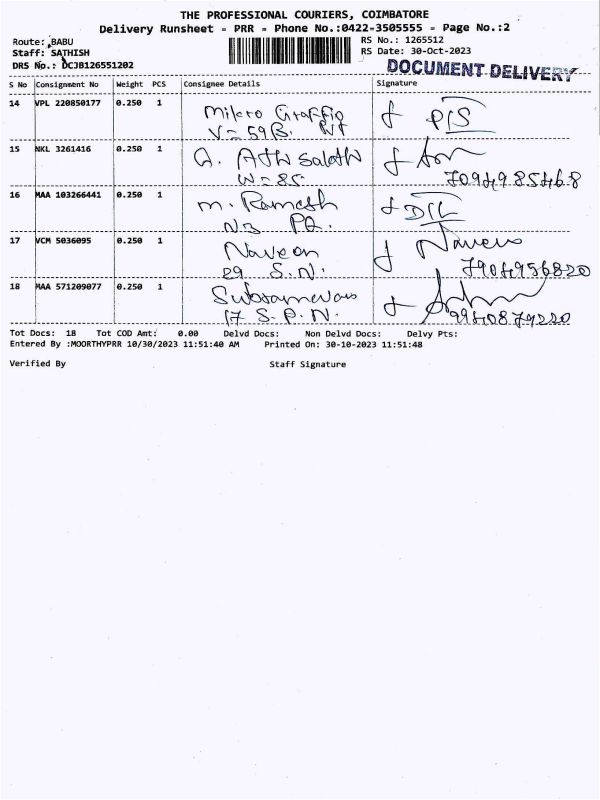 THE PROFESSIONAL COURIERS, COIMBATORE
Delivery Runsheet - PRR - Phone No.:0422-3505555 - Page No.:2
Route: BABU
RS No.: 1265512
Staff: SATHISH
RS Date: 30-Oct-2023
DRS No.: DCJB126551202
DOCUMENT DELIVERY
S No Consignment No Weight PCS Consignee Details Signature
14 VPL 220850177 0.250 1
V=59B.
15 NKL 3261416 0.250 1
W=85
7094985468
16 MAA 103266441 0.250 1 M. Ramesh
17 VCM 5036095 0.250 1 Naveen
29 S.N. 7904956820
18 MAA 571209077 0.250 1
17 S.P.N. 9940879220
Tot Docs: 18 Tot COD Amt: 0.00 Delvd Docs: Non Delvd Docs: Delvy Pts:
Entered By :MOORTHYPRR 10/30/2023 11:51:40 AM Printed On: 30-10-2023 11:51:48
Verified By Staff Signature